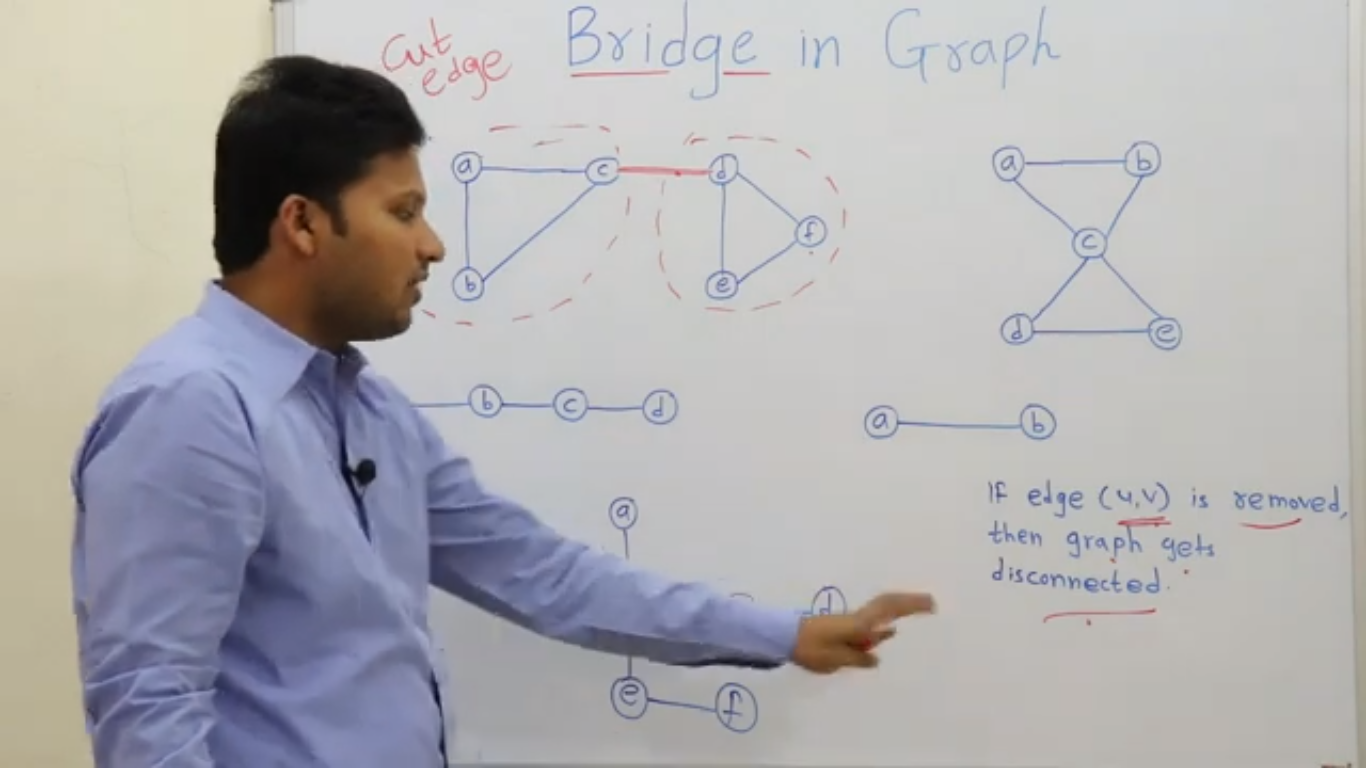 Cut
edge
Bridge in Graph
a c d
f
b e
a b
c
d e
b c d
a b
If edge (u,v) is removed,
then graph gets
disconnected.
a
d
e f